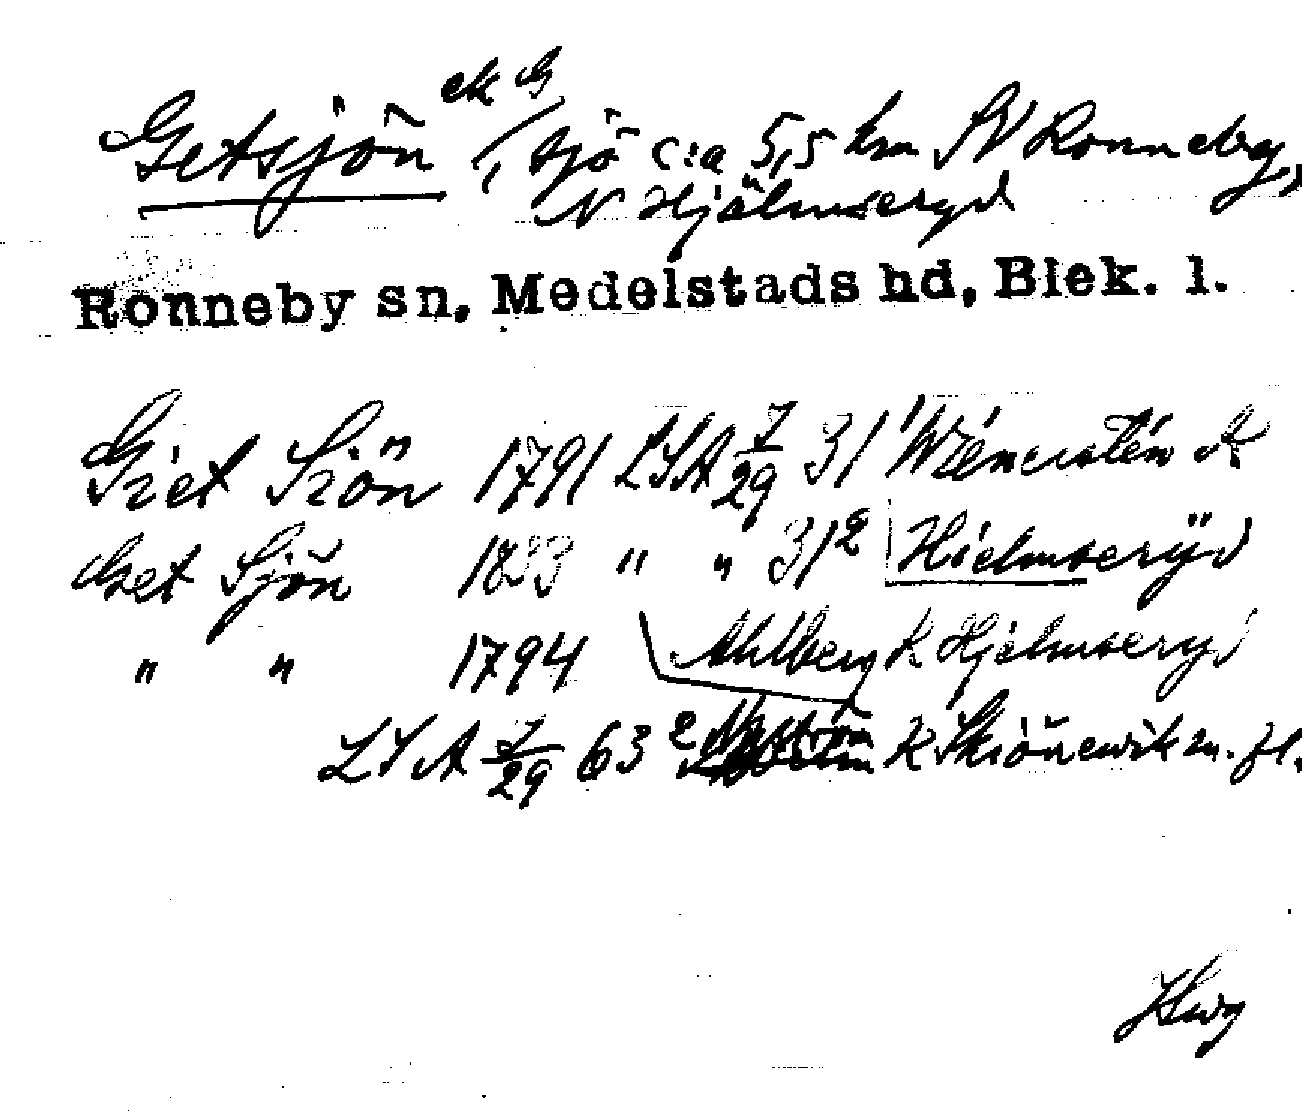 ek G
Getsjön, sjö c:a 5,5 km SV Ronneby,
N Hjälmseryd
Ronneby sn, Medelstads hd, Blek. l.
Giet Siön 1791 LSA 7/29 31 K
Get Sjön 1833 " " 31² Hielmserÿd
" " 1794 Ahlberg K Hjelmseryd
LSA 7/29 63² K Skiönewik m. fl.